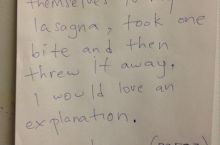 themselves to my
lasagna, took one
bite and then
threw it away.
I would love an
explanation.